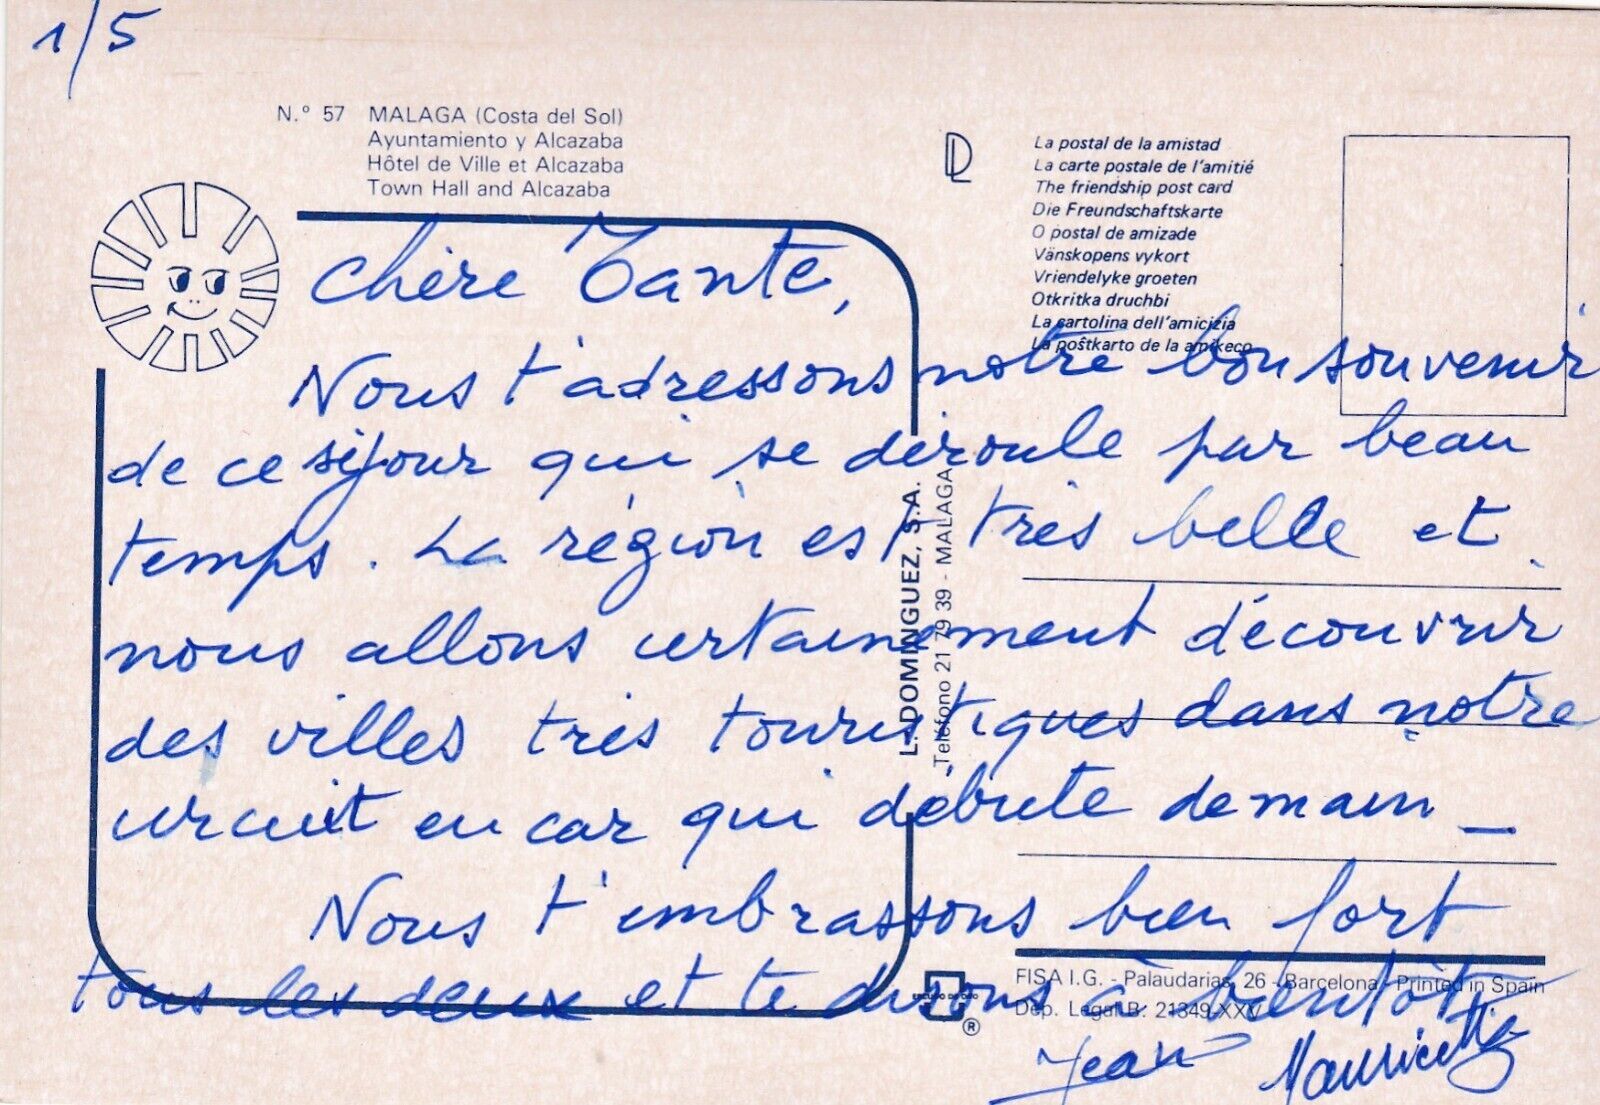 1/5
N.º 57 MALAGA (Costa del Sol)
Ayuntamiento y Alcazaba
Hôtel de Ville et Alcazaba
Town Hall and Alcazaba
La postal de la amistad
La carte postale de l'amitié
The friendship post card
Die Freundschaftskarte
O postal de amizade
Vänskopens vykort
Vriendelyke groeten
Otkritka druchbi
La cartolina dell'amicizia
La poŝtkarto de la amikeco
Chère Tante,
Nous t'adressons notre bon souvenir
de ce séjour qui se déroule par beau
temps. La région est très belle et
nous allons certainement découvrir
des villes très touristiques dans notre
circuit en car qui débute demain _
Nous t'embrassons bien fort
tous les deux et te disons à bientôt
Jean Mauricette
L. DOMINGUEZ, S.A.
Teléfono 21 79 39 - MALAGA
ESCUDO DE ORO
®
FISA I.G. - Palaudarias, 26 - Barcelona - Printed in Spain
Dep. Legal B. 21349-XXV